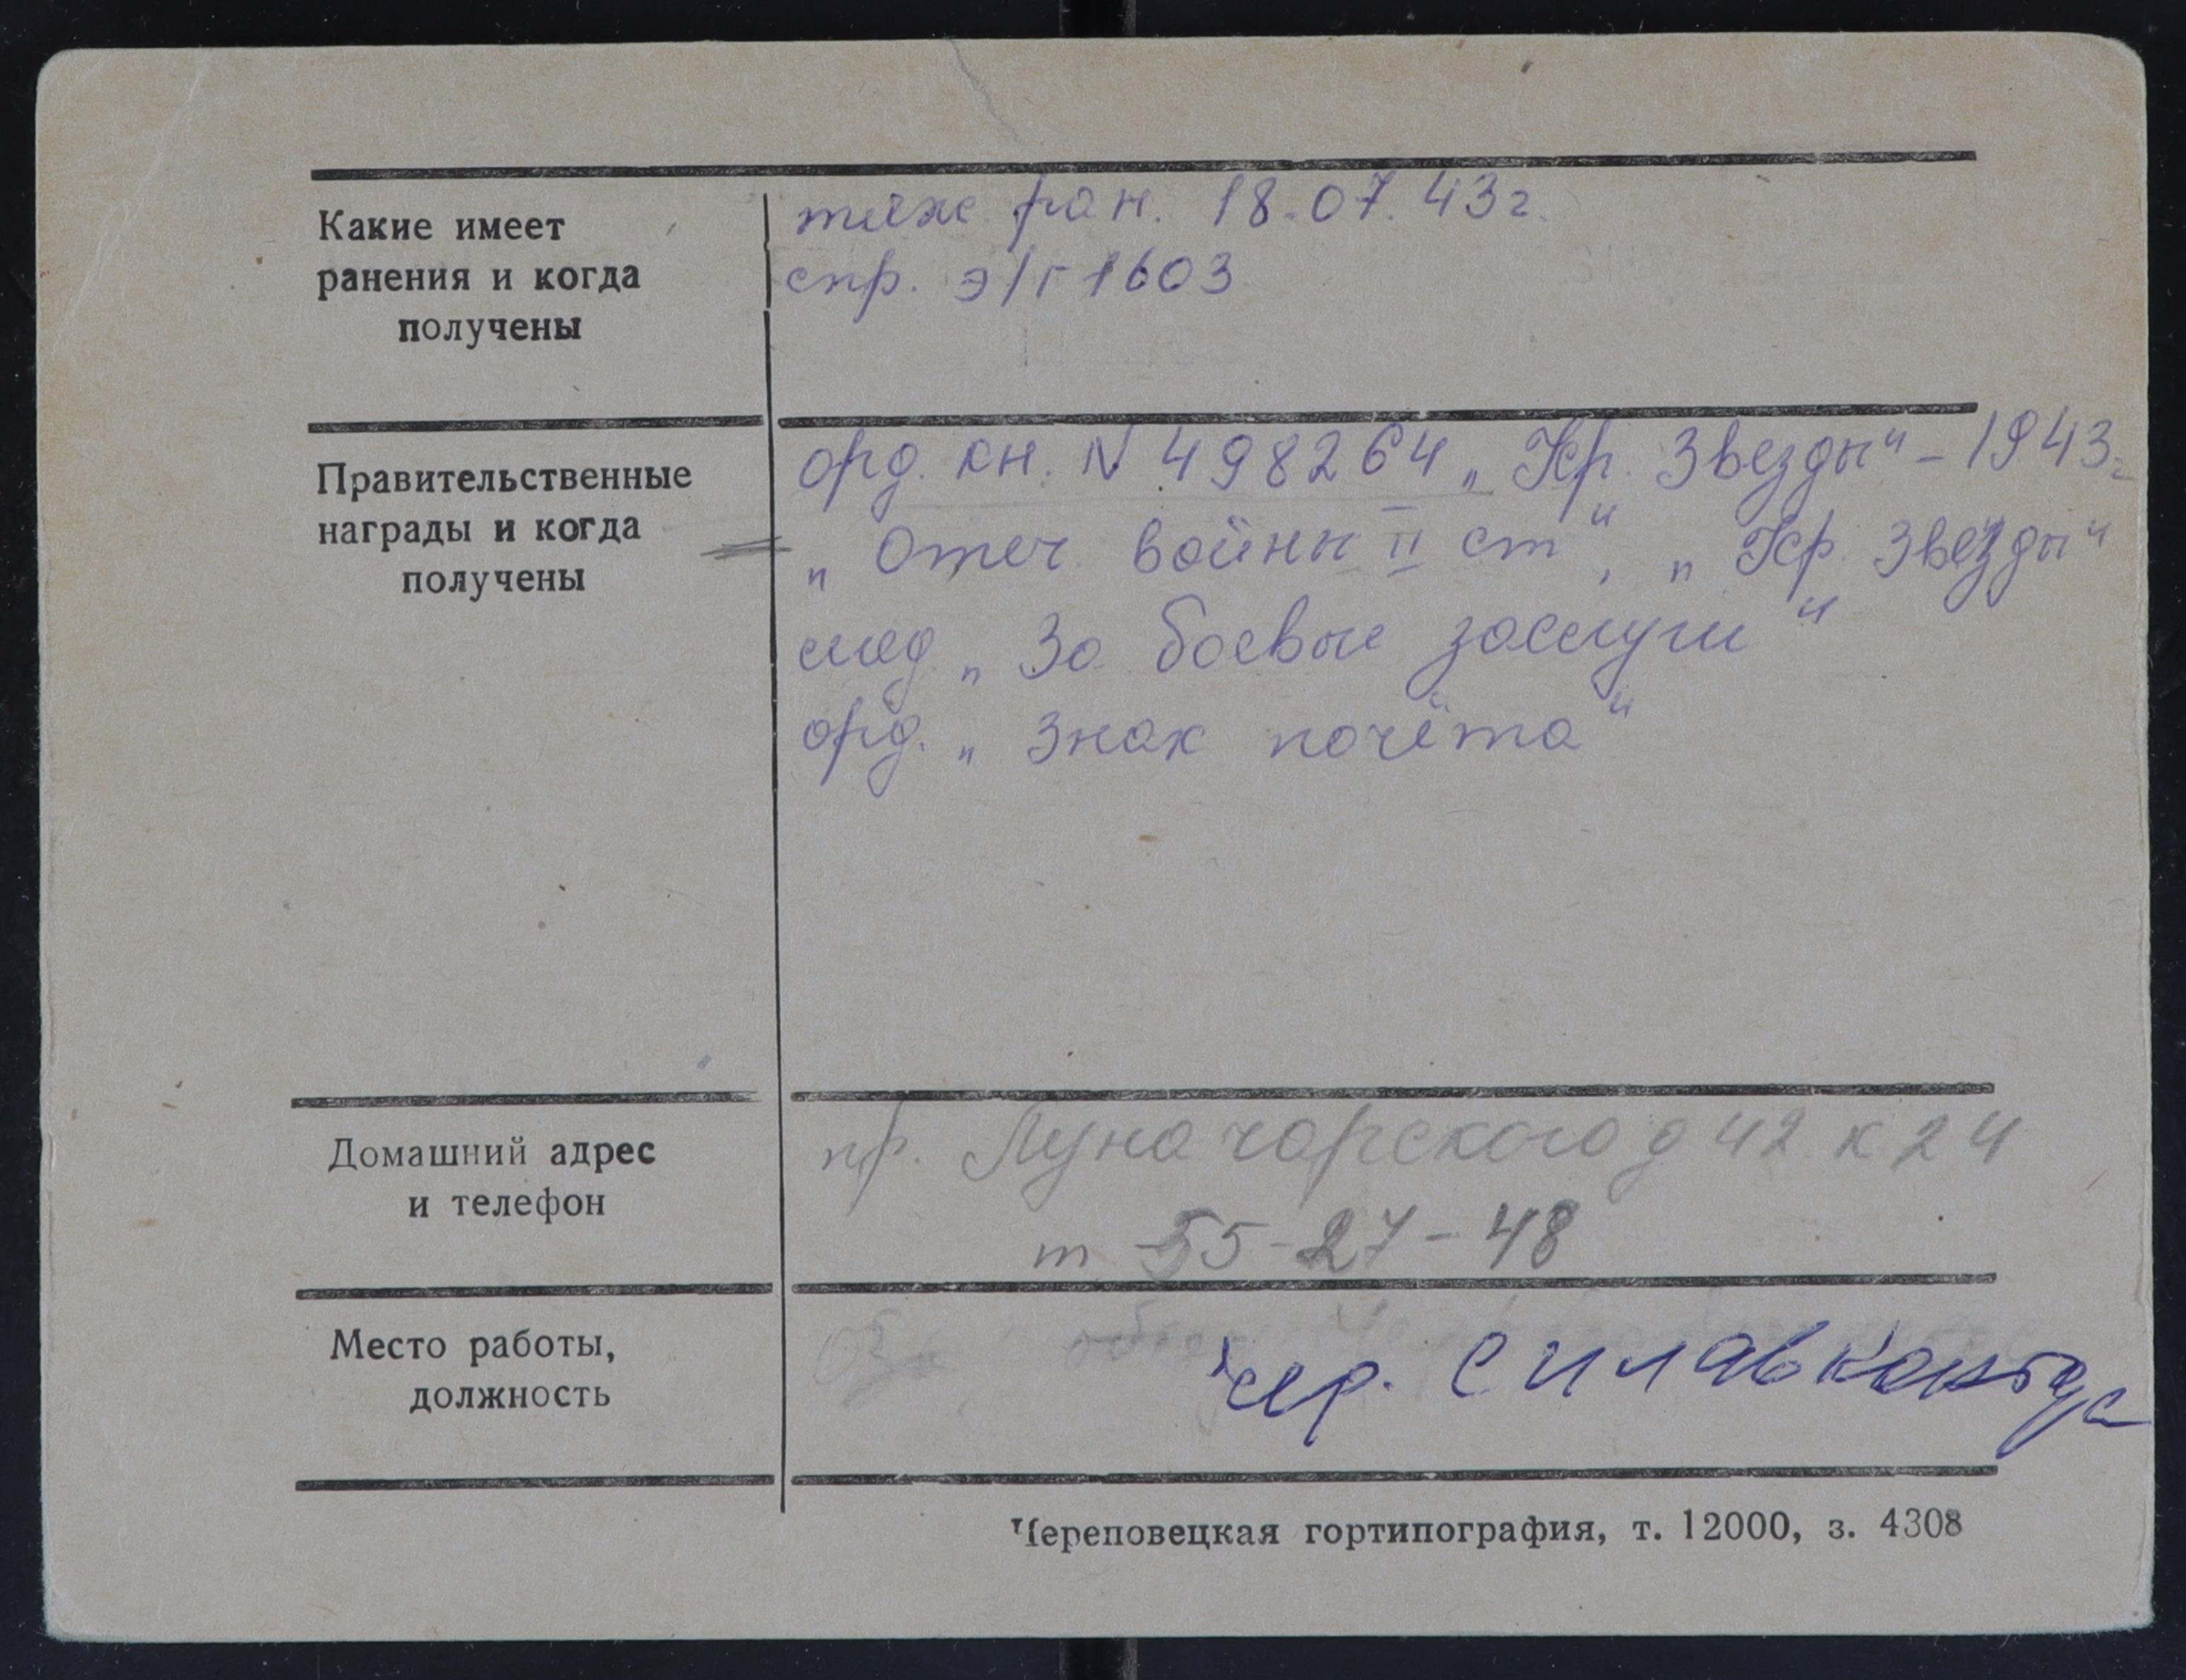 Какие имеет
ранения и когда
получены
тяж ран. 18.07.43г.
спр. э/г 1603
Правительственные
награды и когда
получены
орд. кн. N 498264 „Кр. Звезды" - 1943г
„Отеч войны II ст", „Кр. Звезды"
мед „За боевые заслуги"
орд. „Знак почёта"
Домашний адрес
и телефон
пр. Луначарского д 42 к 24
т 55-27-48
Место работы,
должность
Череповецкая гортипография, т. 12000, з. 4308